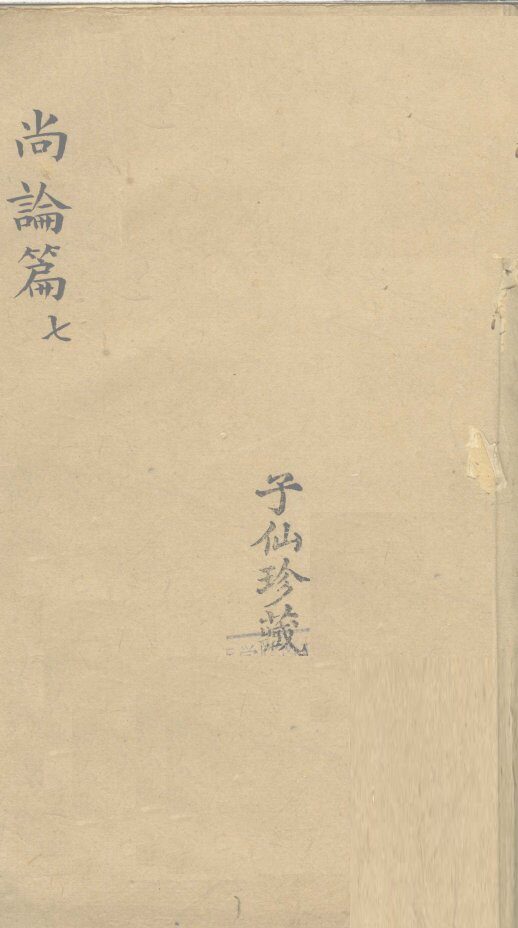 尚論篇七
子仙珍藏